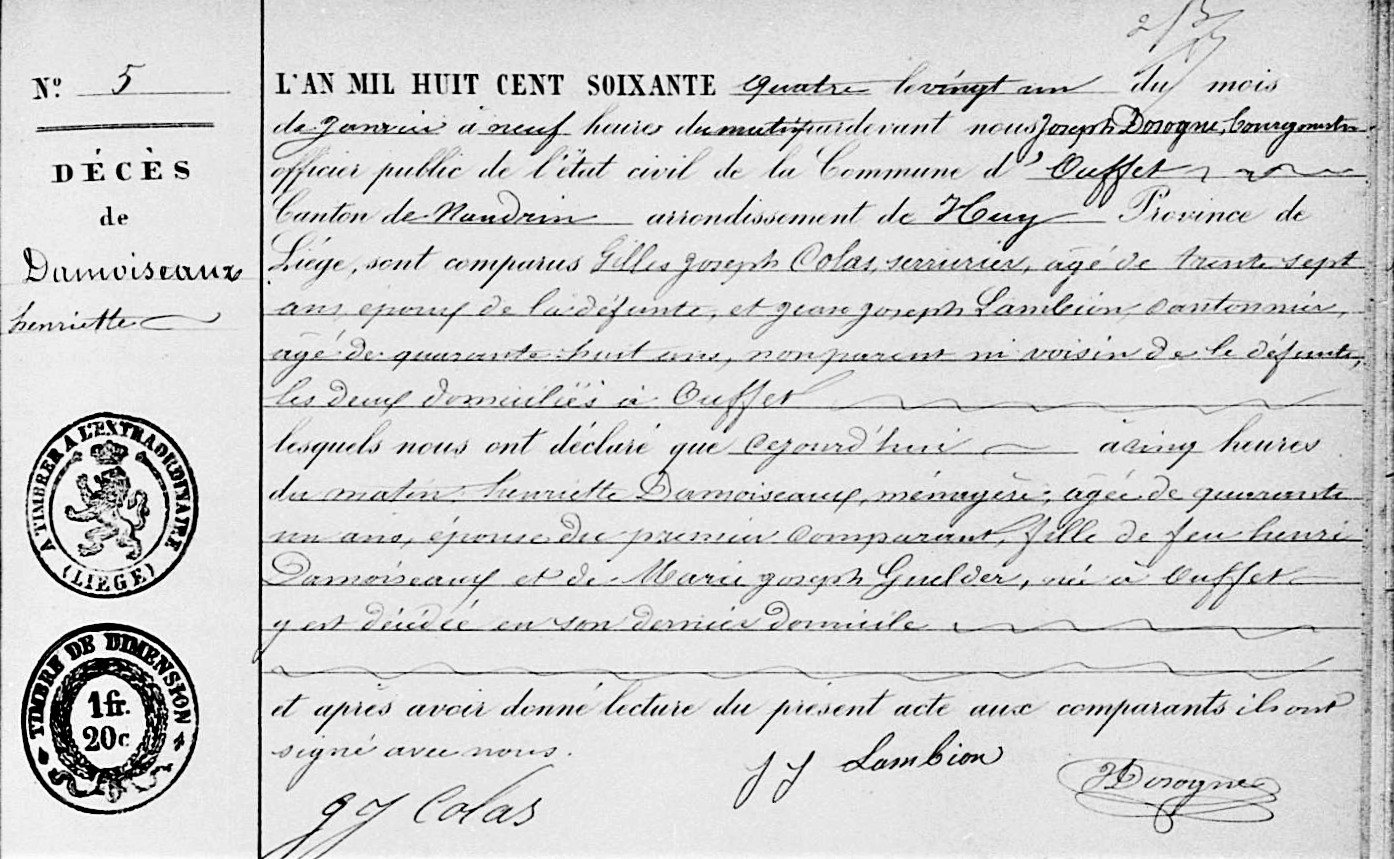 Nº 5
DÉCÈS
de
Damoiseaux
henriette
A TIMBRER A L'EXTRAORDINAIRE
(LIEGE)
TIMBRE DE DIMENSION
1 fr.
20c
L'AN MIL HUIT CENT SOIXANTE quatre le vingt un du mois
de Janvier à neuf heures du matin pardevant nous Joseph Dosogne, bourgmestre
officier public de l'état civil de la Commune d'Ouffet
Canton de Nandrin arrondissement de Huy Province de
Liége, sont comparus Gilles Joseph Colas, serrurier, âgé de trente sept
ans, époux de la défunte, et Jean Joseph Lambion, Cantonnier,
âgé de quarante huit ans, non parent ni voisin de la défunte,
les deux domiciliés à Ouffet
lesquels nous ont déclaré que cejourd'hui à cinq heures
du matin henriette Damoiseaux, ménagère, âgée de quarante
un ans, épouse du premier Comparant, fille de feu henri
Damoiseaux et de Marie Joseph Guelder, née à Ouffet
y est décédée en son dernier domicile
et après avoir donné lecture du présent acte aux comparants ils ont
signé avec nous.
J J Lambion
J Dosogne
G J Colas